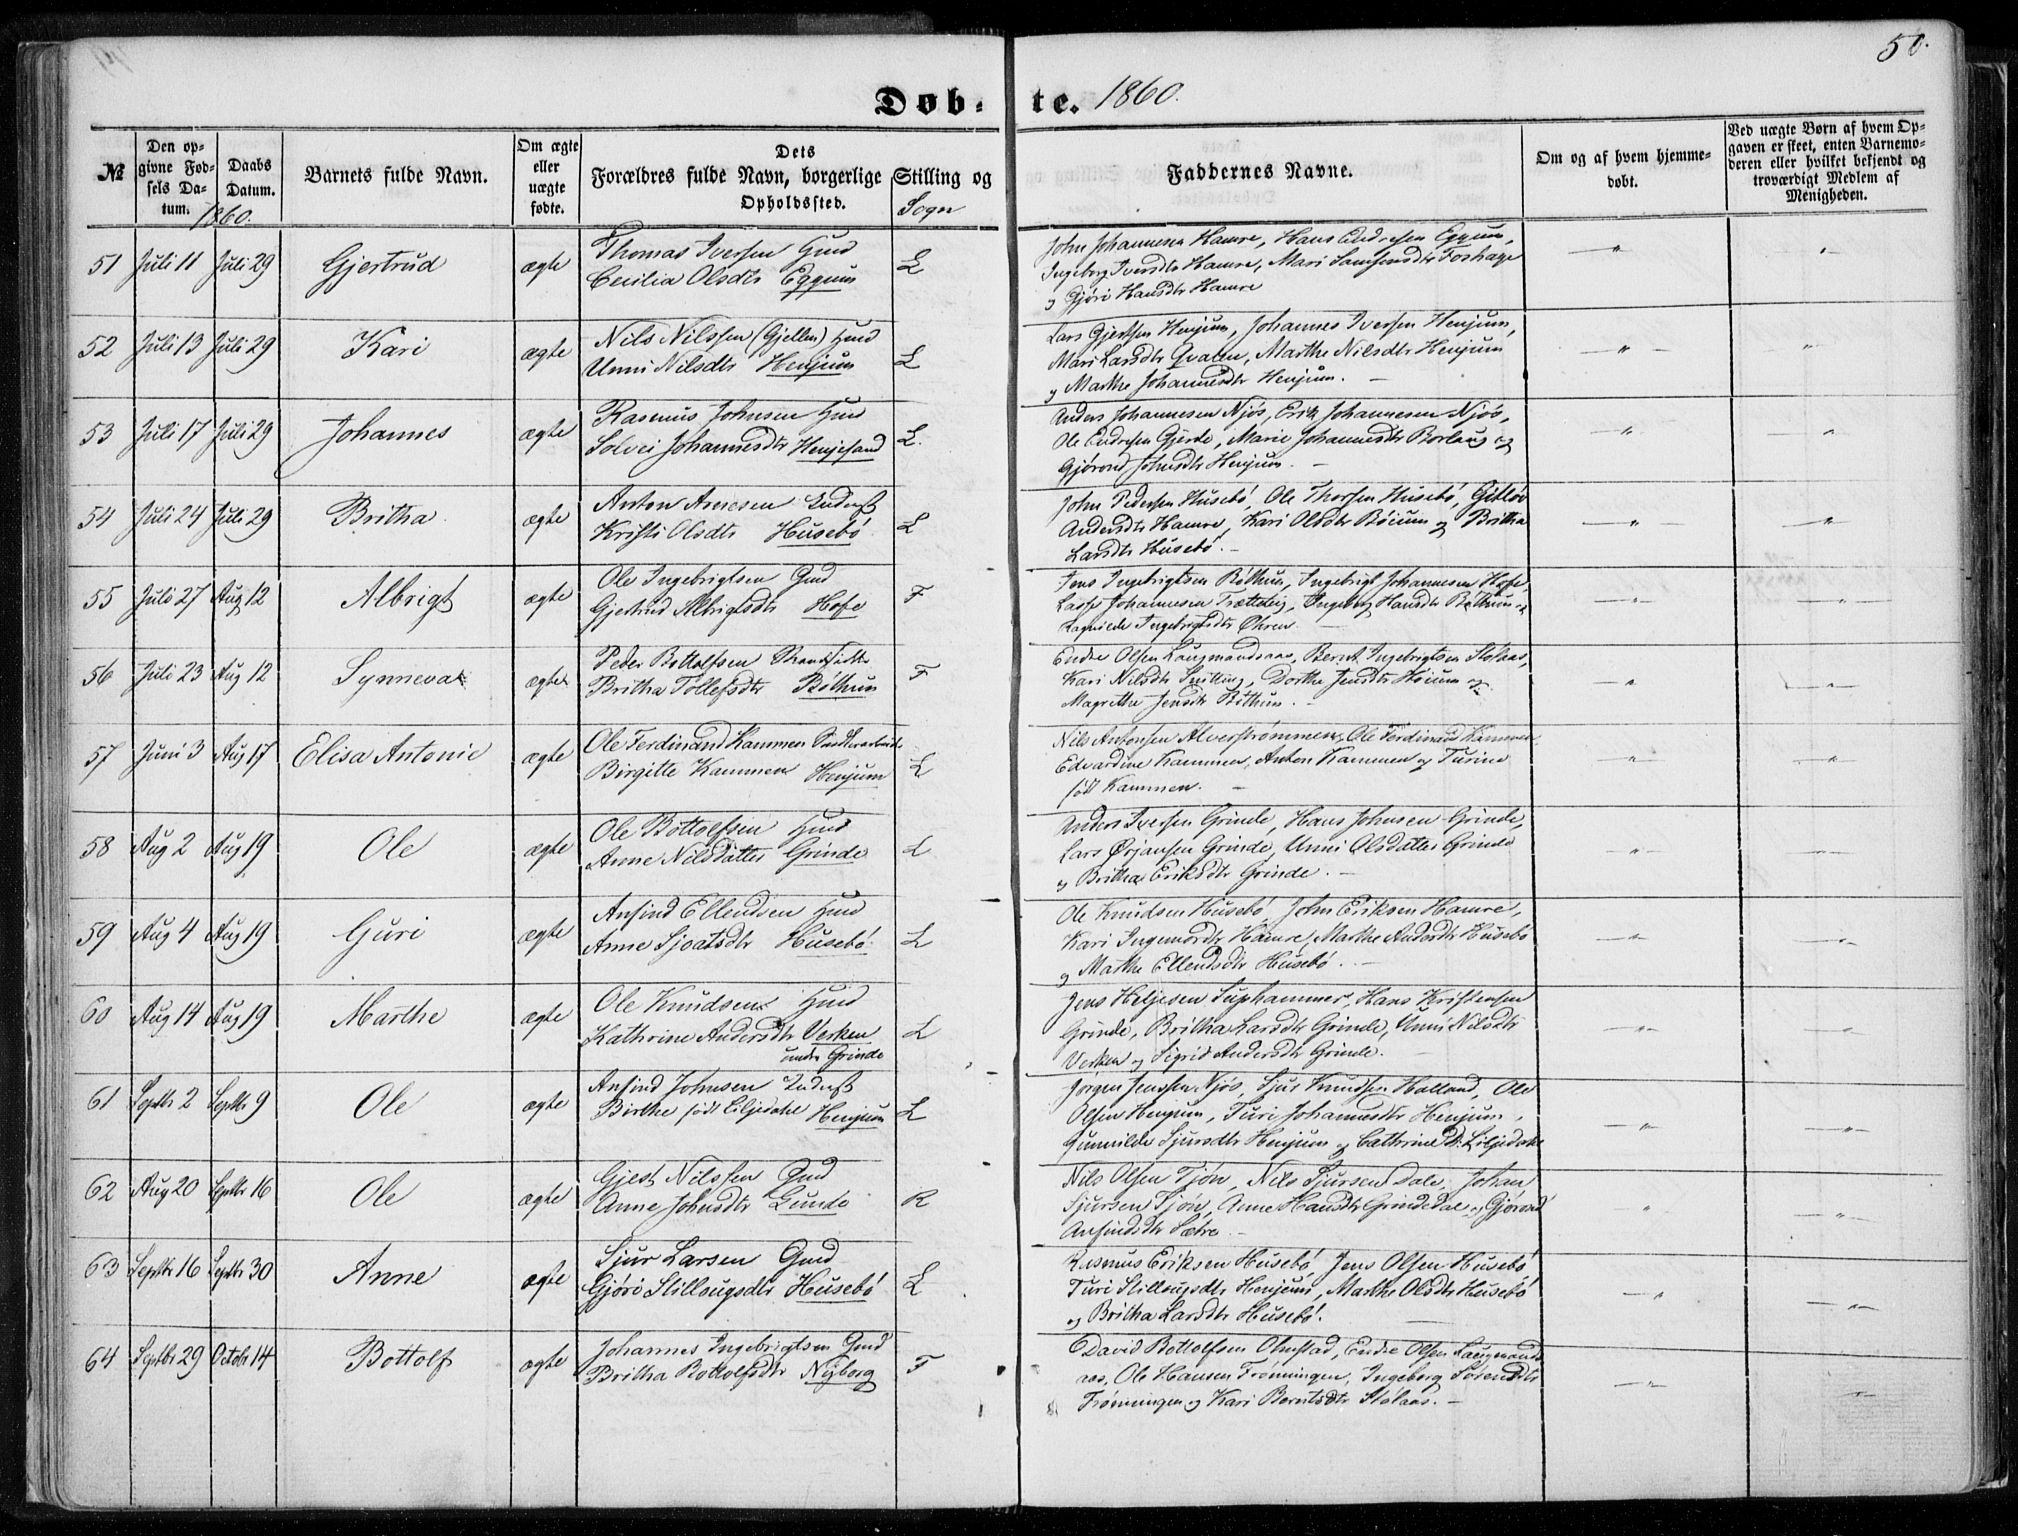 50.
Døb-te. 1860.
№
Den opgivne Fødsels Datum.
Daabs Datum.
1860.
Barnets fulde Navn.
Om ægte eller uægte fødte.
Dets Forældres fulde Navn, borgerlige Stilling og Opholdssted.
Sogn
Faddernes Navne.
Om og af hvem hjemmedøbt.
Ved uægte Børn af hvem Opgaven er skeet, enten Barnemoderen eller hvilket bekjendt og troværdigt Medlem af Menigheden.
51 Juli 11 Juli 29 Gjertrud ægte Thomas Iversen Hmd
Cecilia Olsdtr Eggum L
John Johannesen Hamre, Hans Endresen Eggum,
Ingeborg Iversdtr Hamre, Mari Samsonsdtr Foshage
og Gjøri Hansdtr Hamre
52 Juli 13 Juli 29 Kari ægte Nils Nilssen (Gjellen) Hmd
Unni Nilsdtr Henjum L
Lars Gjertsen Henjum, Johannes Iversen Henjum,
Mari Larsdtr Qvalen, Marthe Nilsdtr Henjum
og Marthe Johannesdtr Henjum. —
53 Juli 17 Juli 29 Johannes ægte Rasmus Johnsen Hmd
Solvei Johannesdtr Henjesand L.
Anders Johannesen Njøs, Erik Johannesen Njøs,
Ole Endresen Gjerde, Marie Johannesdtr Borlaug og
Gjørond Johnsdtr Henjum. —
54 Juli 24 Juli 29 Britha ægte Anton Arnesen Inderst
Kristi Olsdtr Husebø L
John Pedersen Husebø, Ole Thorsen Husebø, Gitløv
Andersdtr Hamre, Kari Olsdtr Bøium og Britha
Larsdtr Husebø. —
55 Juli 27 Aug 12 Albrigt ægte Ole Ingebrigtsen Gmd
Gjertrud Albrigtsdtr Hofe F
Jens Ingebrigtsen Bøthun, Ingebrigt Johannesen Hofe,
Lasse Johannesen Trætteteig, Ingeborg Hansdtr Bøthun og
Ragnilde Ingebrigtsdtr Øhren —
56 Juli 23 Aug 12 Synneva ægte Peder Bottolfsen Strandsidder
Britha Tollefsdtr Bøthun F
Endre Olsen Laugmandsaas, Bernt Ingebrigtsen Stølaas,
Kari Nilsdtr Snilling, Dorthe Jensdtr Høium og
Magrethe Jensdtr Bøthun. —
57 Juni 3 Aug 17 Elisa Antonie ægte Ole Ferdinand Kammen
Birgitte Kammen Henjum L
Nils Antonsen Alverstrømmen, Ole Ferdinand Kammen
Edvardine Kammen, Anton Kammen og Turine
født Kammen. —
58 Aug 2 Aug 19 Ole ægte Ole Bottolfsen Hmd
Anne Nilsdatter Grinde L
Anders Iversen Grinde, Hans Johnsen Grinde,
Lars Ørjansen Grinde, Unni Olsdatter Grinde
og Britha Eriksdtr Grinde. —
59 Aug 4 Aug 19 Guri ægte Anfind Ellendsen Hmd
Anne Sjoatsdtr Husebø L
Ole Knudsen Husebø, John Eriksen Hamre,
Kari Ingemorsdtr Hamre, Marthe Andersdtr Husebø
og Marthe Ellendsdtr Husebø. —
60 Aug 14 Aug 19 Marthe ægte Ole Knudsen Hmd
Kathrine Andersdtr Verken
under Grinde L
Jens Heljesen Suphammer, Hans Kristensen
Grinde, Britha Larsdtr Grinde, Unni Nilsdtr
Verken og Sigrid Andersdtr Grinde.
61 Septbr 2 Septbr 9 Ole ægte Anfind Johnsen Inderst
Birthe født Liljedahl Henjum L
Jørgen Jenssen Njøs, Sjur Knudsen Halland, Ole
Olsen Henjum, Turi Johannesdtr Henjum,
Gunnilde Sjursdtr Henjum og Cathrine D. Liljedahl
62 Aug 20 Septbr 16 Ole ægte Gjest Nilssen Gmd
Anne Johnsdtr Gunde R
Nils Olsen Tjøn, Nils Sjursen Dale, Johan
Sjursen Tjøn, Anne Hansdtr Grindedal og Gjørond
Anfindsdtr Sætre —
63 Septbr 16 Septbr 30 Anne ægte Sjur Larsen Gmd
Gjøri Stillougsdtr Husebø L
Rasmus Eriksen Husebø, Jens Olsen Husebø
Turi Stillougsdtr Henjum, Marthe Olsdtr Husebø
og Britha Larsdtr Husebø. —
64 Septbr 29 Octobr 14 Bottolf ægte Johannes Ingebrigtsen Gmd
Britha Bottolfsdtr Nyborg F
David Bottolfsen Ohnstad, Endre Olsen Laugmands
aas, Ole Hansen Frønningen, Ingeborg Sørensdtr
Frønningen og Kari Berntsdtr Stølaas. —